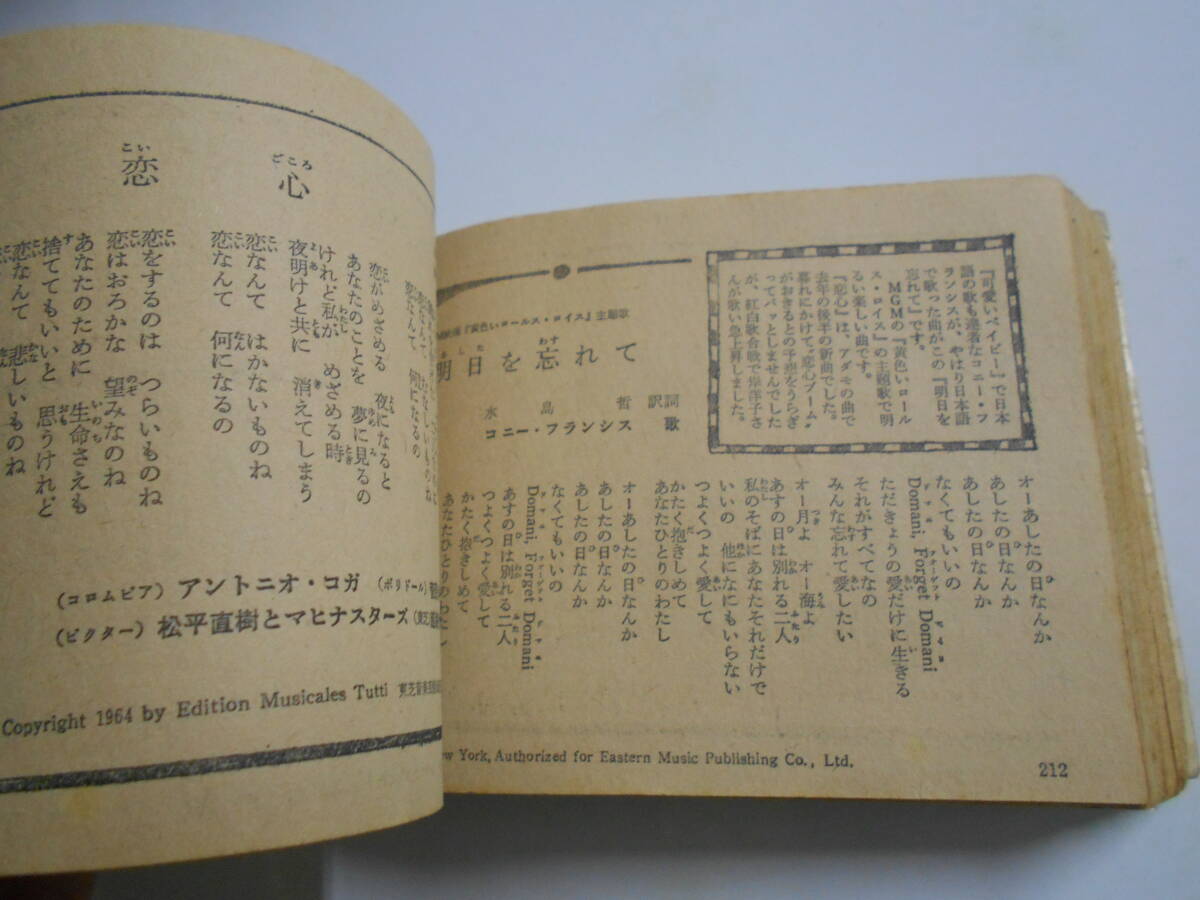 『可愛いベイビー』で日本
語の歌も達者なコニー・フ
ランシスが、やはり日本語
で歌った曲がこの『明日を
忘れて』です。
MGMの『黄色いロール
ス・ロイス』の主題歌で明
るい楽しい曲です。
『恋心』は、アダモの曲で
去年の後半の新曲でした。
暮れにかけて〝恋心ブーム〟
がおきるとの予想をうらぎ
ってパッとしませんでした
が、紅白歌合戦で岸洋子さ
んが歌い急上昇しました。
『黄色いロールス・ロイス』主題歌
明日を忘れて
水島哲 訳詞
コニー・フランシス 歌
オーあしたの日なんか
あしたの日なんか
あしたの日なんか
なくてもいいの
Domani, Forget Domani
ただきょうの愛だけに生きる
それがすべてなの
みんな忘れて愛したい
オー月よ オー海よ
あすの日は別れる二人
私のそばにあなたそれだけで
いいの 他になにもいらない
つよくつよく愛して
かたく抱きしめて
あなたひとりのわたし
オーあしたの日なんか
あしたの日なんか
あしたの日なんか
なくてもいいの
Domani, Forget Domani
あすの日は別れる二人
つよくつよく愛して
かたく抱きしめて
あなたひとりのわたし
York, Authorized for Eastern Music Publishing Co., Ltd.
212
恋心
恋がめざめる 夜になると
あなたのことを 夢に見るの
けれど私が めざめる時
夜明けと共に 消えてしまう
恋なんて はかないものね
恋なんて 何になるの
恋をするのは つらいものね
恋はおろかな 望みなのね
あなたのために 生命さえも
捨ててもいいと 思うけれど
恋なんて 悲しいものね
(コロムビア) アントニオ・コガ (ポリドール)
(ビクター) 松平直樹とマヒナスターズ
Copyright 1964 by Edition Musicales Tutti